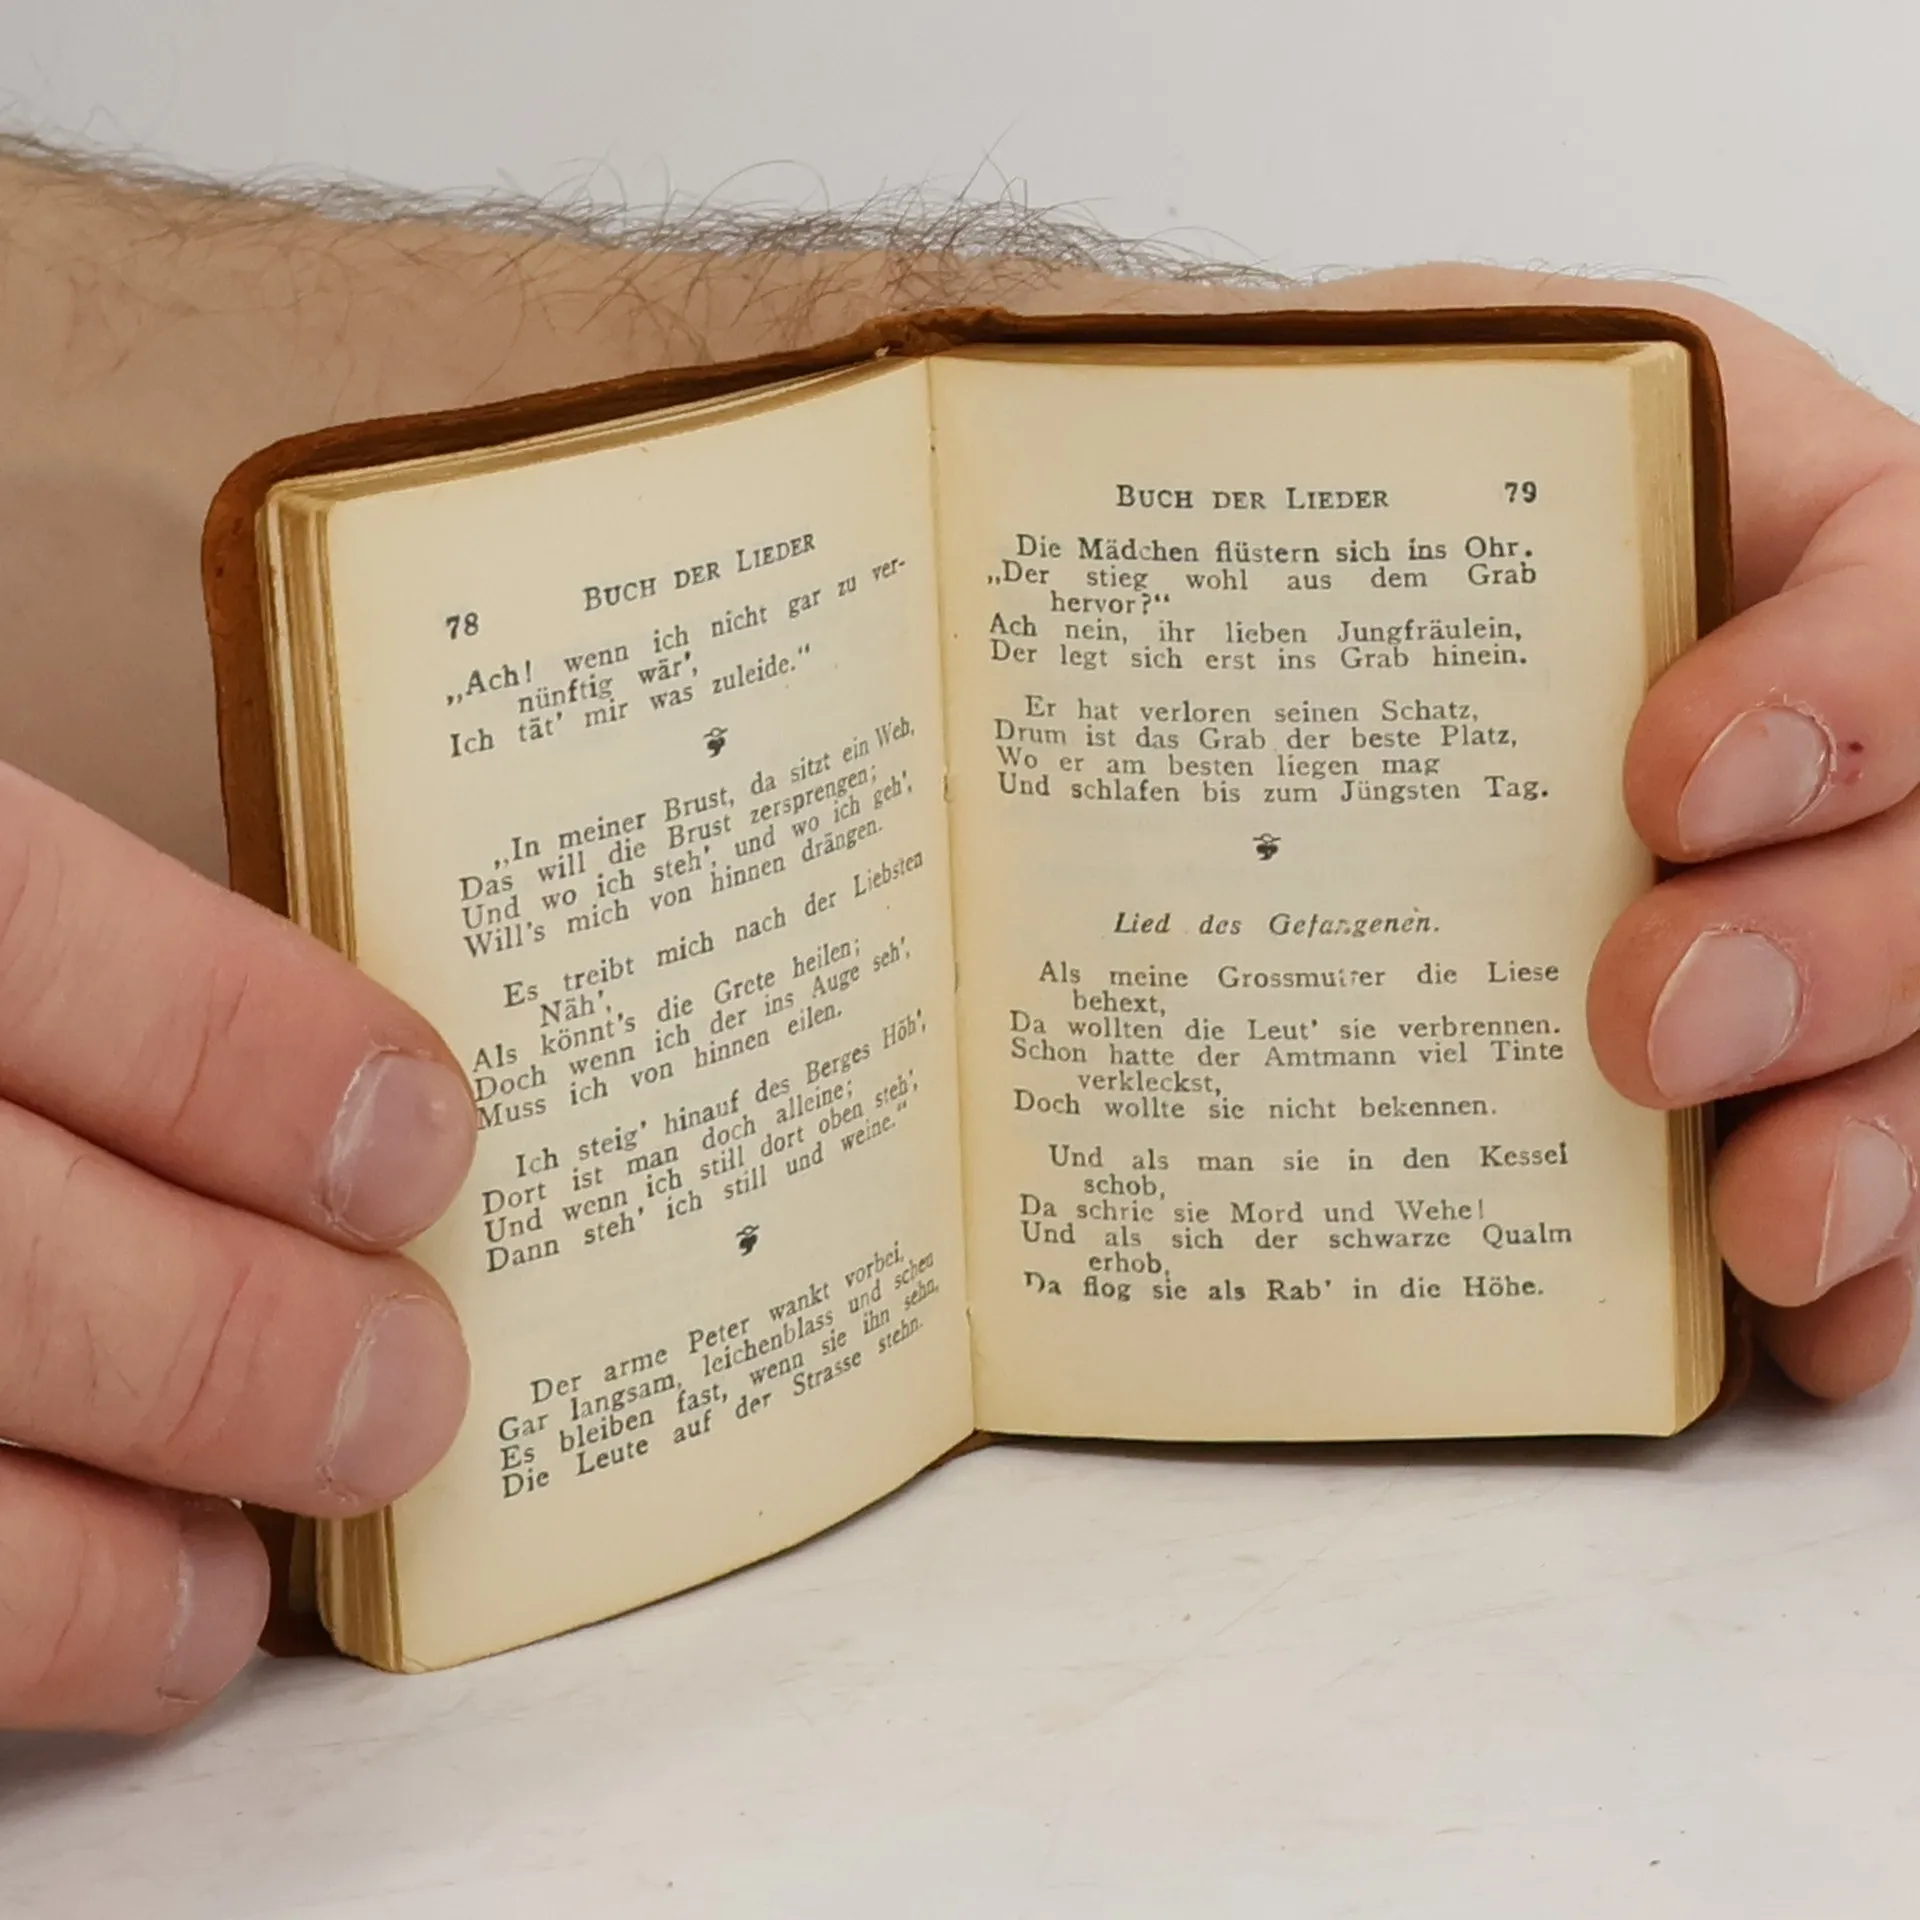 78 BUCH DER LIEDER
„Ach! wenn ich nicht gar zu ver-
nünftig wär',
Ich tät' mir was zuleide.“
„In meiner Brust, da sitzt ein Weh,
Das will die Brust zersprengen;
Und wo ich steh', und wo ich geh',
Will's mich von hinnen drängen.
Es treibt mich nach der Liebsten
Näh',
Als könnt's die Grete heilen;
Doch wenn ich der ins Auge seh',
Muss ich von hinnen eilen.
Ich steig' hinauf des Berges Höh',
Dort ist man doch alleine;
Und wenn ich still dort oben steh',
Dann steh' ich still und weine.“
Der arme Peter wankt vorbei,
Gar langsam, leichenblass und scheu
Es bleiben fast, wenn sie ihn sehn,
Die Leute auf der Strasse stehn.
BUCH DER LIEDER 79
Die Mädchen flüstern sich ins Ohr.
„Der stieg wohl aus dem Grab
hervor?“
Ach nein, ihr lieben Jungfräulein,
Der legt sich erst ins Grab hinein.
Er hat verloren seinen Schatz,
Drum ist das Grab der beste Platz,
Wo er am besten liegen mag
Und schlafen bis zum Jüngsten Tag.
Lied des Gefangenen.
Als meine Grossmutter die Liese
behext,
Da wollten die Leut' sie verbrennen.
Schon hatte der Amtmann viel Tinte
verkleckst,
Doch wollte sie nicht bekennen.
Und als man sie in den Kessel
schob,
Da schrie sie Mord und Wehe!
Und als sich der schwarze Qualm
erhob,
Da flog sie als Rab' in die Höhe.